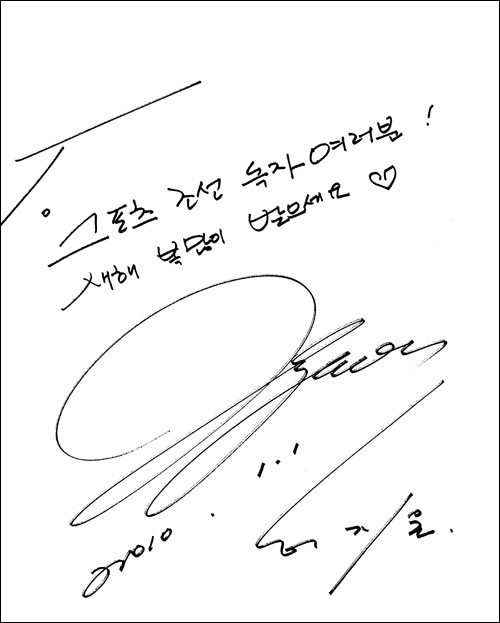 스포츠 조선 독자 여러분!
새해 복많이 받으세요 ♡
2010. 1. 1
허 지 윤.